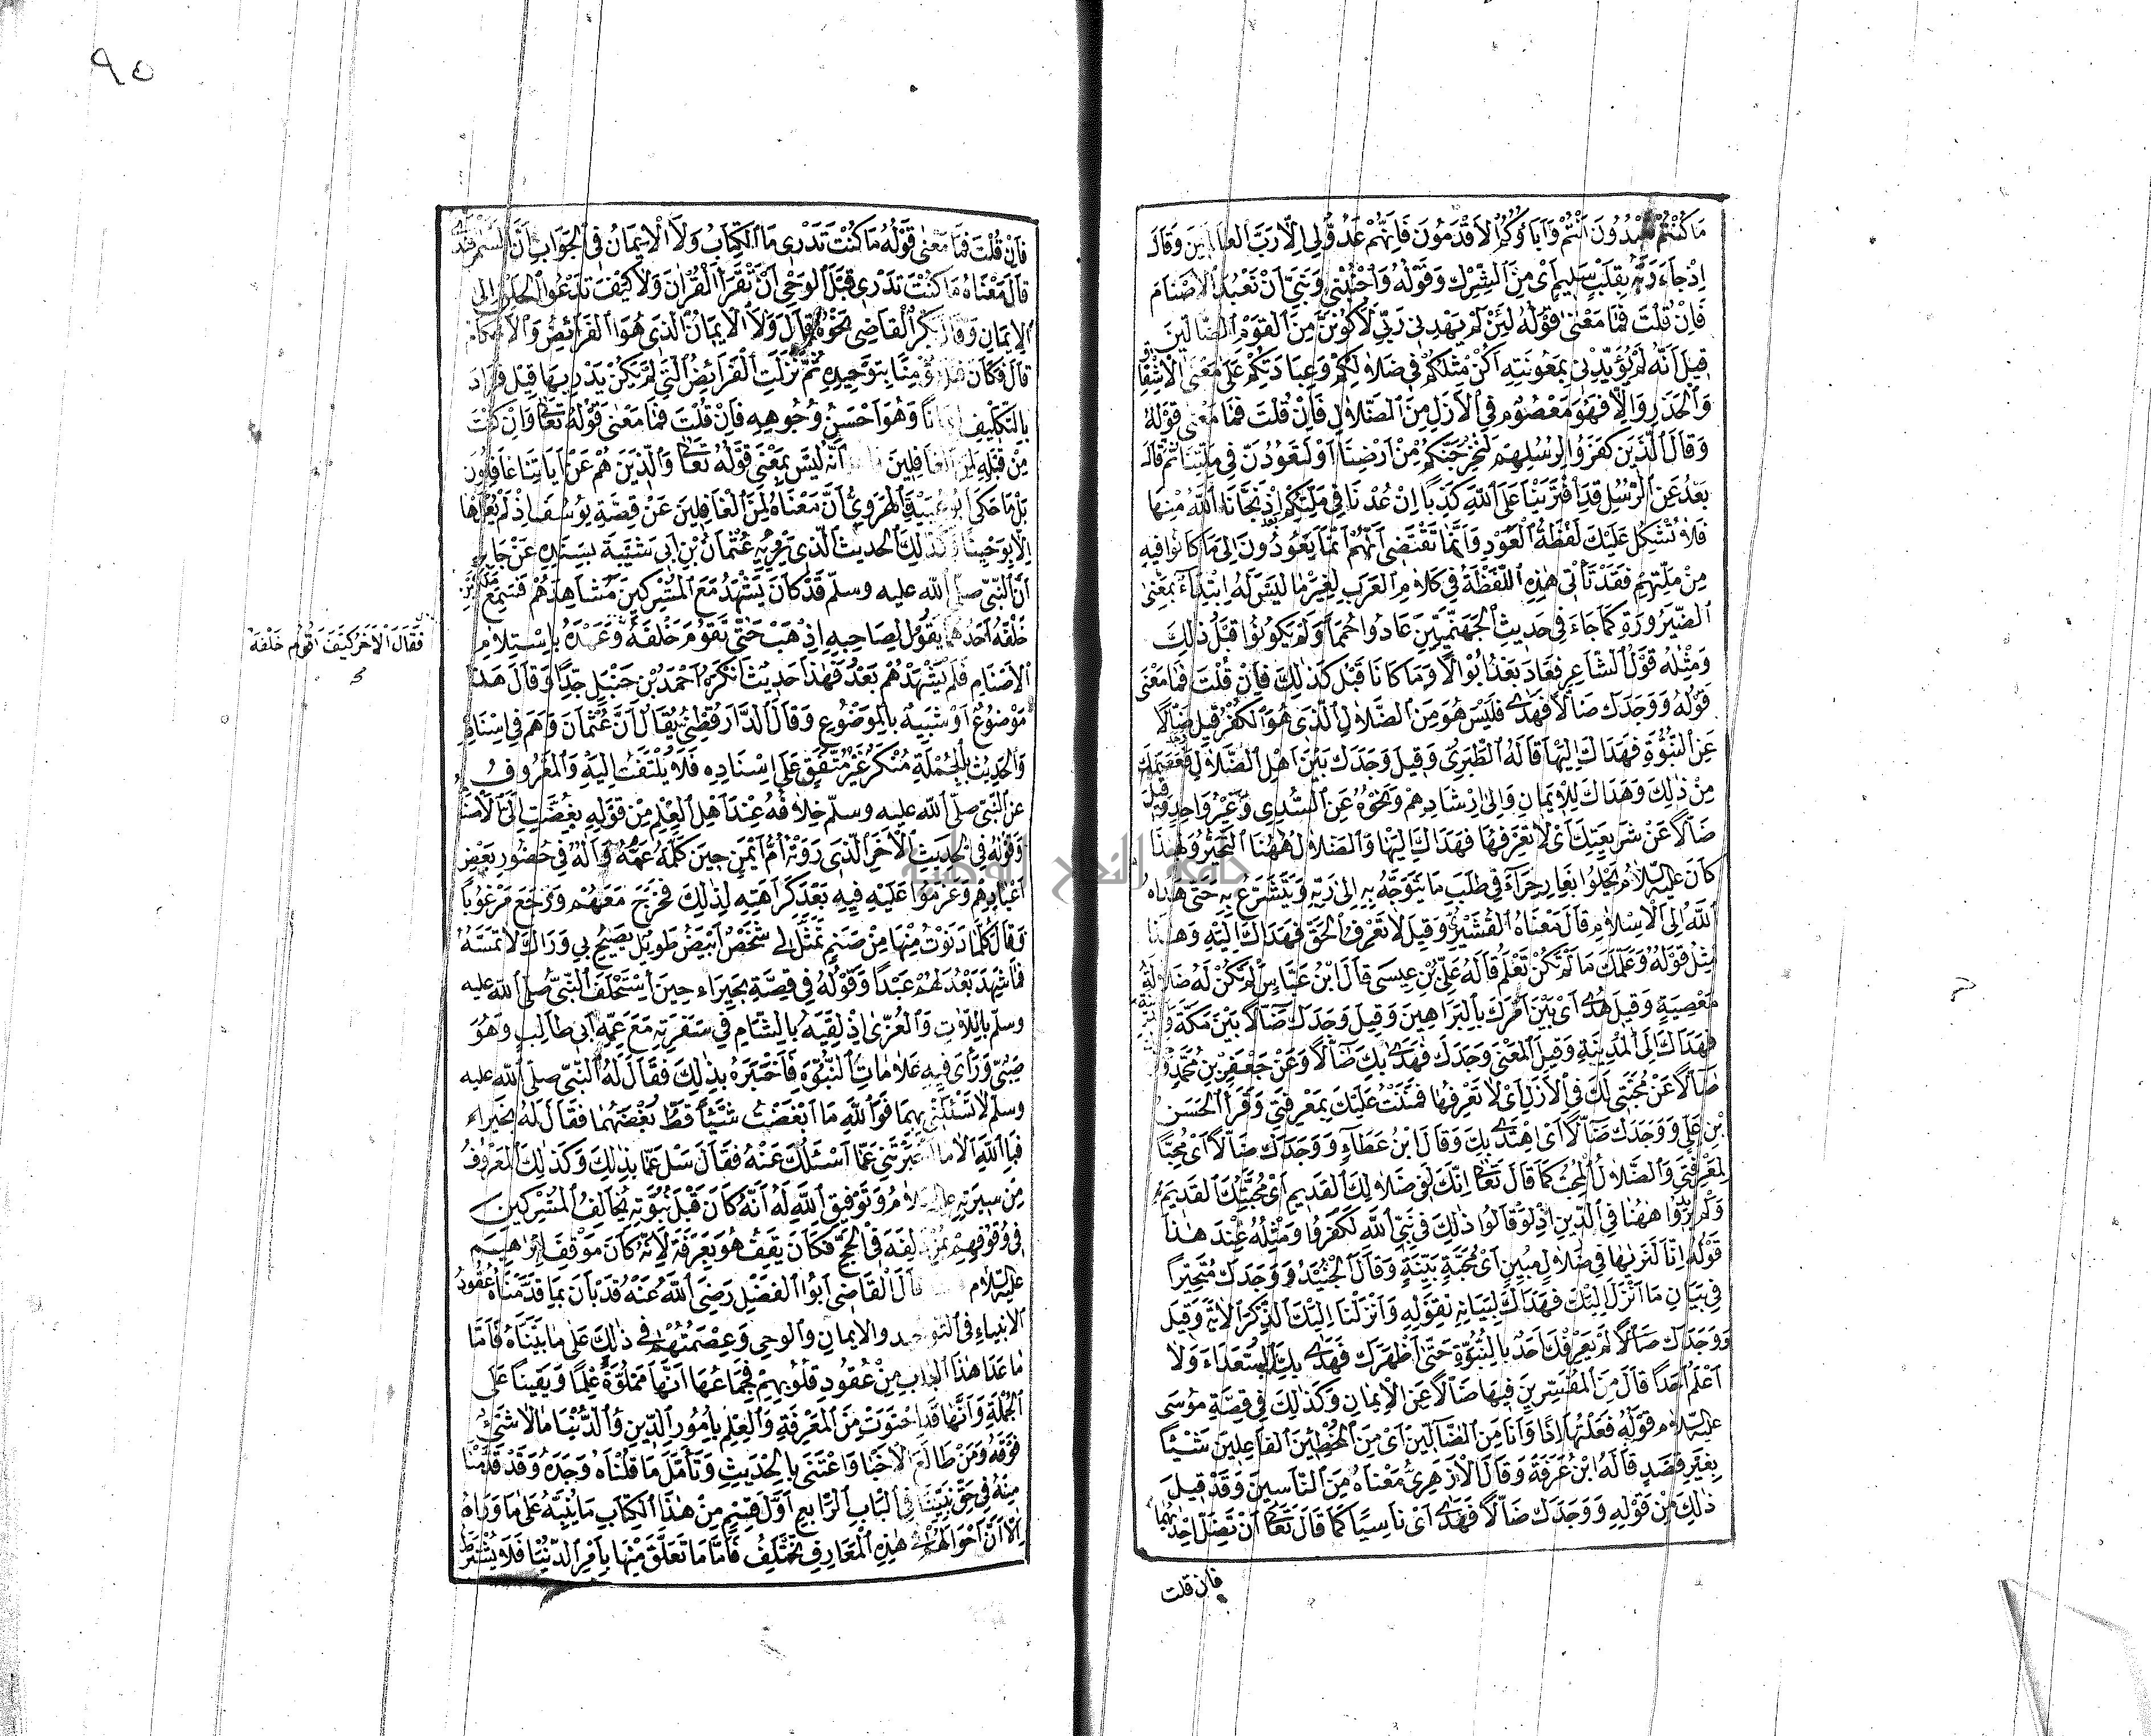 مَا كُنْتُمْ تَعْبُدُونَ اَنْتُمْ وَاٰبَاؤُكُمُ الْاَقْدَمُونَ فَاِنَّهُمْ عَدُوٌّ لِى اِلَّا رَبَّ الْعَالَمِينَ وَقَالَ
اِذْ جَاءَ رَبَّهُ بِقَلْبٍ سَلِيمٍ اَىْ مِنَ الشِّرْكِ وَقَوْلُهُ وَاجْنُبْنِى وَبَنِىَّ اَنْ نَعْبُدَ الْاَصْنَامَ
فَاِنْ قُلْتَ فَمَا مَعْنٰى قَوْلُهُ لَئِنْ لَمْ يَهْدِنِى رَبِّى لَاَكُونَنَّ مِنَ الْقَوْمِ الضَّالِّينَ
قِيلَ اَنَّهُ لَمْ يُؤَيِّدْنِى بِمَعُونَتِهِ اَكُنْ مِثْلَكُمْ فِى ضَلَالَتِكُمْ وَعِبَادَتِكُمْ عَلٰى مَعْنَى الْاِشْفَاقِ
وَالْحَذَرِ وَاِلَّا فَهُوَ مَعْصُومٌ فِى الْاَزَلِ مِنَ الضَّلَالِ فَاِنْ قُلْتَ فَمَا مَعْنٰى قَوْلُهُ
وَقَالَ الَّذِينَ كَفَرُوا لِرُسُلِهِمْ لَنُخْرِجَنَّكُمْ مِنْ اَرْضِنَا اَوْ لَتَعُودُنَّ فِى مِلَّتِنَا ثُمَّ قَالَ
بَعْدُ عَنِ الرُّسُلِ قَدِ افْتَرَيْنَا عَلَى اللّٰهِ كَذِبًا اِنْ عُدْنَا فِى مِلَّتِكُمْ اِذْ نَجَّانَا اللّٰهُ مِنْهَا
فَلَا تُشْكِلْ عَلَيْكَ لَفْظَةُ الْعَوْدِ وَاَنَّهَا تَقْتَضِى اَنَّهُمْ اِنَّمَا يَعُودُونَ اِلٰى مَا كَانُوا فِيهِ
مِنْ مِلَّتِهِمْ فَقَدْ تَأْتِى هٰذِهِ اللَّفْظَةُ فِى كَلَامِ الْعَرَبِ لِغَيْرِ مَا لَيْسَ لَهُ اِبْتِدَاءٌ بِمَعْنٰى
الصَّيْرُورَةِ كَمَا جَاءَ فِى حَدِيثِ الْجَهَنَّمِيِّينَ عَادُوا حُمَمًا وَلَمْ يَكُونُوا قَبْلُ ذٰلِكَ
وَمِثْلُهُ قَوْلُ الشَّاعِرِ فَعَادَ بَعْدُ اَبْوَالًا وَمَا كَانَا قَبْلُ كَذٰلِكَ فَاِنْ قُلْتَ فَمَا مَعْنٰى
قَوْلُهُ وَوَجَدَكَ ضَالًّا فَهَدٰى فَلَيْسَ هُوَ مِنَ الضَّلَالِ الَّذِى هُوَ الْكُفْرُ قِيلَ ضَالًّا
عَنِ النُّبُوَّةِ فَهَدَاكَ اِلَيْهَا قَالَهُ الطَّبَرِىُّ وَقِيلَ وَجَدَكَ بَيْنَ اَهْلِ الضَّلَالِ فَعَصَمَكَ
مِنْ ذٰلِكَ وَهَدَاكَ لِلْاِيمَانِ وَاِلٰى اِرْشَادِهِمْ وَنَحْوُهُ عَنِ السُّدِّى وَغَيْرُ وَاحِدٍ وَقِيلَ
ضَالًّا عَنْ شَرِيعَتِكَ اَىْ لَا تَعْرِفُهَا فَهَدَاكَ اِلَيْهَا وَالضَّلَالُ هٰهُنَا التَّحَيُّرُ وَلِهٰذَا
كَانَ عليه السلام يَخْلُوا بِغَارِ حِرَاءٍ فِى طَلَبِ مَا يَتَوَجَّهُ بِهِ اِلٰى رَبِّهِ وَيَتَشَرَّعُ بِهِ حَتّٰى هَدَاهُ
اللّٰهُ اِلَى الْاِسْلَامِ قَالَ مَعْنَاهُ الْقُشَيْرِىُّ وَقِيلَ لَا تَعْرِفُ الْحَقَّ فَهَدَاكَ اِلَيْهِ وَهٰذَا
مِثْلُ قَوْلِهِ وَعَلَّمَكَ مَا لَمْ تَكُنْ تَعْلَمُ قَالَهُ عَلِىُّ بْنُ عِيسٰى قَالَ ابْنُ عَبَّاسٍ لَمْ تَكُنْ لَهُ ضَلَالَةُ
مَعْصِيَةٍ وَقِيلَ هَدٰى اَىْ بَيَّنَ اَمْرَكَ بِالْبَرَاهِينَ وَقِيلَ وَجَدَكَ ضَالًّا بَيْنَ مَكَّةَ
فَهَدَاكَ اِلَى الْمَدِينَةِ وَقِيلَ الْمَعْنٰى وَجَدَكَ فَهَدٰى بِكَ ضَالًّا وَعَنْ جَعْفَرِ بْنِ مُحَمَّدٍ
ضَالًّا عَنْ مَحَبَّتِى لَكَ فِى الْاَزَلِ اَىْ لَا تَعْرِفُهَا فَمَنَنْتُ عَلَيْكَ بِمَعْرِفَتِى وَقَرَأَ الْحَسَنُ
بْنِ عَلِىٍّ وَوَجَدَكَ ضَالًّا اَىْ اهْتَدٰى بِكَ وَقَالَ ابْنُ عَطَاءٍ وَوَجَدَكَ ضَالًّا اَىْ مُحِبًّا
لِمَعْرِفَتِى وَالضَّلَالُ الْمُحِبُّ كَمَا قَالَ تَعَالٰى اِنَّكَ لَفِى ضَلَالِكَ الْقَدِيمِ اَىْ مَحَبَّتِكَ الْقَدِيمَةِ
وَلَمْ يُرِيدُوا هٰهُنَا فِى الدِّينِ اِذْ لَوْ قَالُوا ذٰلِكَ فِى نَبِىِّ اللّٰهِ لَكَفَرُوا وَمِثْلُهُ عِنْدَ هٰذَا
قَوْلُهُ اِنَّا لَنَرٰيهَا فِى ضَلَالٍ مُبِينٍ اَىْ مَحَبَّةٍ بَيِّنَةٍ وَقَالَ الْجُنَيْدُ وَوَجَدَكَ مُتَحَيِّرًا
فِى بَيَانِ مَا اَنْزَلَ اِلَيْكَ فَهَدَاكَ لِبَيَانِهِ بِقَوْلِهِ وَاَنْزَلْنَا اِلَيْكَ الذِّكْرَ الْاٰيَةَ وَقِيلَ
وَوَجَدَكَ ضَالًّا لَمْ يَعْرِفْكَ اَحَدٌ بِالنُّبُوَّةِ حَتّٰى اَظْهَرَكَ فَهَدٰى بِكَ السُّعَدَاءَ وَلَا
اَعْلَمُ اَحَدًا قَالَ مِنَ الْمُفَسِّرِينَ فِيهَا ضَالًّا عَنِ الْاِيمَانِ وَكَذٰلِكَ فِى قِصَّةِ مُوسٰى
عليه السلام قَوْلُهُ فَعَلْتُهَا اِذًا وَاَنَا مِنَ الضَّالِّينَ اَىْ مِنَ الْمُخْطِئِينَ الْفَاعِلِينَ شَيْئًا
بِغَيْرِ قَصْدٍ قَالَهُ ابْنُ عَرَفَةَ وَقَالَ الْاَزْهَرِىُّ مَعْنَاهُ مِنَ النَّاسِينَ وَقَدْ قِيلَ
ذٰلِكَ مِنْ قَوْلِهِ وَوَجَدَكَ ضَالًّا فَهَدٰى اَىْ نَاسِيًا كَمَا قَالَ تَعَالٰى اَنْ تَضِلَّ اِحْدٰيهُمَا
فان قلت
٩٥
فَاِنْ قُلْتَ فَمَا مَعْنٰى قَوْلِهِ مَا كُنْتَ تَدْرِى مَا الْكِتَابُ وَلَا الْاِيمَانُ فِى الْجَوَابِ اَنَّ السَّمَرْقَنْدِىَّ
قَالَ مَعْنَاهُ مَا كُنْتَ تَدْرِى قَبْلَ الْوَحْىِ اَنْ تَقْرَأَ الْقُرْاٰنَ وَلَا كَيْفَ تَدْعُو الْخَلْقَ اِلٰى
الْاِيمَانِ وَقَالَ بَكْرٌ الْقَاضِى نَحْوَهُ قَالَ وَلَا الْاِيمَانُ الَّذِى هُوَ الْفَرَائِضُ وَالْاَحْكَامُ
قَالَ فَكَانَ قَبْلُ مُؤْمِنًا بِتَوْحِيدِهِ ثُمَّ نَزَلَتِ الْفَرَائِضُ الَّتِى لَمْ يَكُنْ يَدْرِيهَا قَبْلُ فَزَادَ
بِالتَّكْلِيفِ اِيمَانًا وَهُوَ اَحْسَنُ وُجُوهِهِ فَاِنْ قُلْتَ فَمَا مَعْنٰى قَوْلُهُ تَعَالٰى وَاِنْ كُنْتَ
مِنْ قَبْلِهِ لَمِنَ الْغَافِلِينَ اَنَّهُ لَيْسَ بِمَعْنٰى قَوْلُهُ تَعَالٰى وَالَّذِينَ هُمْ عَنْ اٰيَاتِنَا غَافِلُونَ
بَلْ مَا حَكٰى اَبُو عُبَيْدٍ الْهَرَوِىُّ اَنَّ مَعْنَاهُ لَمِنَ الْغَافِلِينَ عَنْ قِصَّةِ يُوسُفَ اِذْ لَمْ تَعْلَمْهَا
اِلَّا بِوَحْيِنَا وَكَذٰلِكَ الْحَدِيثُ الَّذِى يَرْوِيهِ عُثْمَانُ بْنِ اَبِى شَيْبَةَ بِسَنَدِهِ عَنْ جَابِرٍ
اَنَّ النَّبِىَّ صلى الله عليه وسلم قَدْ كَانَ يَشْهَدُ مَعَ الْمُشْرِكِينَ مَشَاهِدَهُمْ فَسَمِعَ مَلَكَيْنِ
خَلْفَهُ اَحَدُهُمَا يَقُولُ لِصَاحِبِهِ اِذْهَبْ حَتّٰى تَقُومَ خَلْفَهُ وَعَهْدُهُ بِاسْتِلَامِ
فَقَالَ الْاٰخَرُ كَيْفَ اَقُومُ خَلْفَهُ
الْاَصْنَامِ فَلَمْ يَشْهَدْهُمْ بَعْدُ فَهٰذَا حَدِيثٌ اَنْكَرَهُ اَحْمَدُ بْنُ حَنْبَلٍ جِدًّا وَقَالَ هٰذَا
مَوْضُوعٌ اَوْ شَبِيهٌ بِالْمَوْضُوعِ وَقَالَ الدَّارَقُطْنِىُّ يُقَالُ اَنَّ عُثْمَانَ وَهَمَ فِى اِسْنَادِهِ
وَالْحَدِيثُ بِالْجُمْلَةِ مُنْكَرٌ غَيْرُ مُتَّفَقٍ عَلٰى اِسْنَادِهِ فَلَا يُلْتَفَتُ اِلَيْهِ وَالْمَعْرُوفُ
عَنِ النَّبِىِّ صلى الله عليه وسلم خِلَافُهُ عِنْدَ اَهْلِ الْعِلْمِ مِنْ قَوْلِهِ بُغِّضَتْ اِلَىَّ الْاَصْنَامُ
وَقَوْلُهُ فِى الْحَدِيثِ الْاٰخَرِ الَّذِى رَوَتْهُ اُمُّ اَيْمَنَ حِينَ كَلَّمَهُ عَمُّهُ وَاٰلُهُ فِى حُضُورِ بَعْضِ
اَعْيَادِهِمْ وَعَزَمُوا عَلَيْهِ فِيهِ بَعْدَ كَرَاهَتِهِ لِذٰلِكَ فَخَرَجَ مَعَهُمْ وَرَجَعَ مَرْعُوبًا
وَقَالَ كُلَّمَا دَنَوْتُ مِنْهَا مِنْ صَنَمٍ تَمَثَّلَ لِى شَخْصٌ اَبْيَضُ طَوِيلٌ يَصِيحُ بِى وَرَاءَكَ لَا تَمَسَّهُ
فَمَا شَهِدَ بَعْدُ لَهُمْ عِيْدًا وَقَوْلُهُ فِى قِصَّةِ بَحِيرَاءَ حِينَ اسْتَحْلَفَ النَّبِىَّ صلى الله عليه
وسلم بِاللَّاتِ وَالْعُزّٰى اِذْ لَقِيَهُ بِالشَّامِ فِى سَفْرَتِهِ مَعَ عَمِّهِ اَبِى طَالِبٍ وَهُوَ
صَبِىٌّ وَرَاٰى فِيهِ عَلَامَاتِ النُّبُوَّةِ فَاخْتَبَرَهُ بِذٰلِكَ فَقَالَ لَهُ النَّبِىُّ صلى الله عليه
وسلم لَا تَسْئَلْنِى بِهِمَا فَوَاللّٰهِ مَا اَبْغَضْتُ شَيْئًا قَطُّ بُغْضَهُمَا فَقَالَ لَهُ بَحِيرَاء
فَبِاللّٰهِ اِلَّا مَا اَخْبَرْتَنِى عَمَّا اَسْئَلُكَ عَنْهُ فَقَالَ سَلْ عَمَّا بَدَا لَكَ وَكَذٰلِكَ الْمَعْرُوفُ
مِنْ سِيرَتِهِ عليه السلام وَتَوْفِيقِ اللّٰهِ لَهُ اَنَّهُ كَانَ قَبْلَ نُبُوَّتِهِ يُخَالِفُ الْمُشْرِكِينَ
فِى وُقُوفِهِمْ بِمُزْدَلِفَةَ فِى الْحَجِّ فَكَانَ يَقِفُ هُوَ بِعَرَفَةَ لِاَنَّهُ كَانَ مَوْقِفَ اِبْرٰهِيمَ
عليه السلام قَالَ الْقَاضِى اَبُو الْفَضْلِ رَضِىَ اللّٰهُ عَنْهُ قَدْ بَانَ بِمَا قَدَّمْنَاهُ عُقُودُ
الْاَنْبِيَاءِ فِى التَّوْحِيدِ وَالْاِيمَانِ وَالْوَحْىِ وَعِصْمَتُهُمْ فِى ذٰلِكَ عَلٰى مَا بَيَّنَّاهُ فَاَمَّا
مَا عَدَا هٰذَا الْبَابِ مِنْ عُقُودِ قُلُوبِهِمْ فَجِمَاعُهَا اَنَّهَا مَمْلُوَّةٌ عِلْمًا وَيَقِينًا عَلَى
الْجُمْلَةِ وَاَنَّهَا قَدِ احْتَوَتْ مِنَ الْمَعْرِفَةِ وَالْعِلْمِ بِاُمُورِ الدِّينِ وَالدُّنْيَا مَا لَا شَىْءَ
فَوْقَهُ وَمَنْ طَالَعَ الْاَخْبَارَ وَاعْتَنٰى بِالْحَدِيثِ وَتَأَمَّلَ مَا قُلْنَاهُ وَجَدَهُ وَقَدْ قَدَّمْنَا
مِنْهُ فِى حَقِّ نَبِيِّنَا فِى الْبَابِ الرَّابِعِ اَوَّلَ قِسْمٍ مِنْ هٰذَا الْكِتَابِ مَا يُنَبِّهُ عَلٰى مَا وَرَاءَهُ
اِلَّا اَنَّ اَحْوَالَهُمْ فِى هٰذِهِ الْمَعَارِفِ تَخْتَلِفُ فَاَمَّا مَا تَعَلَّقَ مِنْهَا بِاَمْرِ الدُّنْيَا فَلَا يُشْتَرَطُ